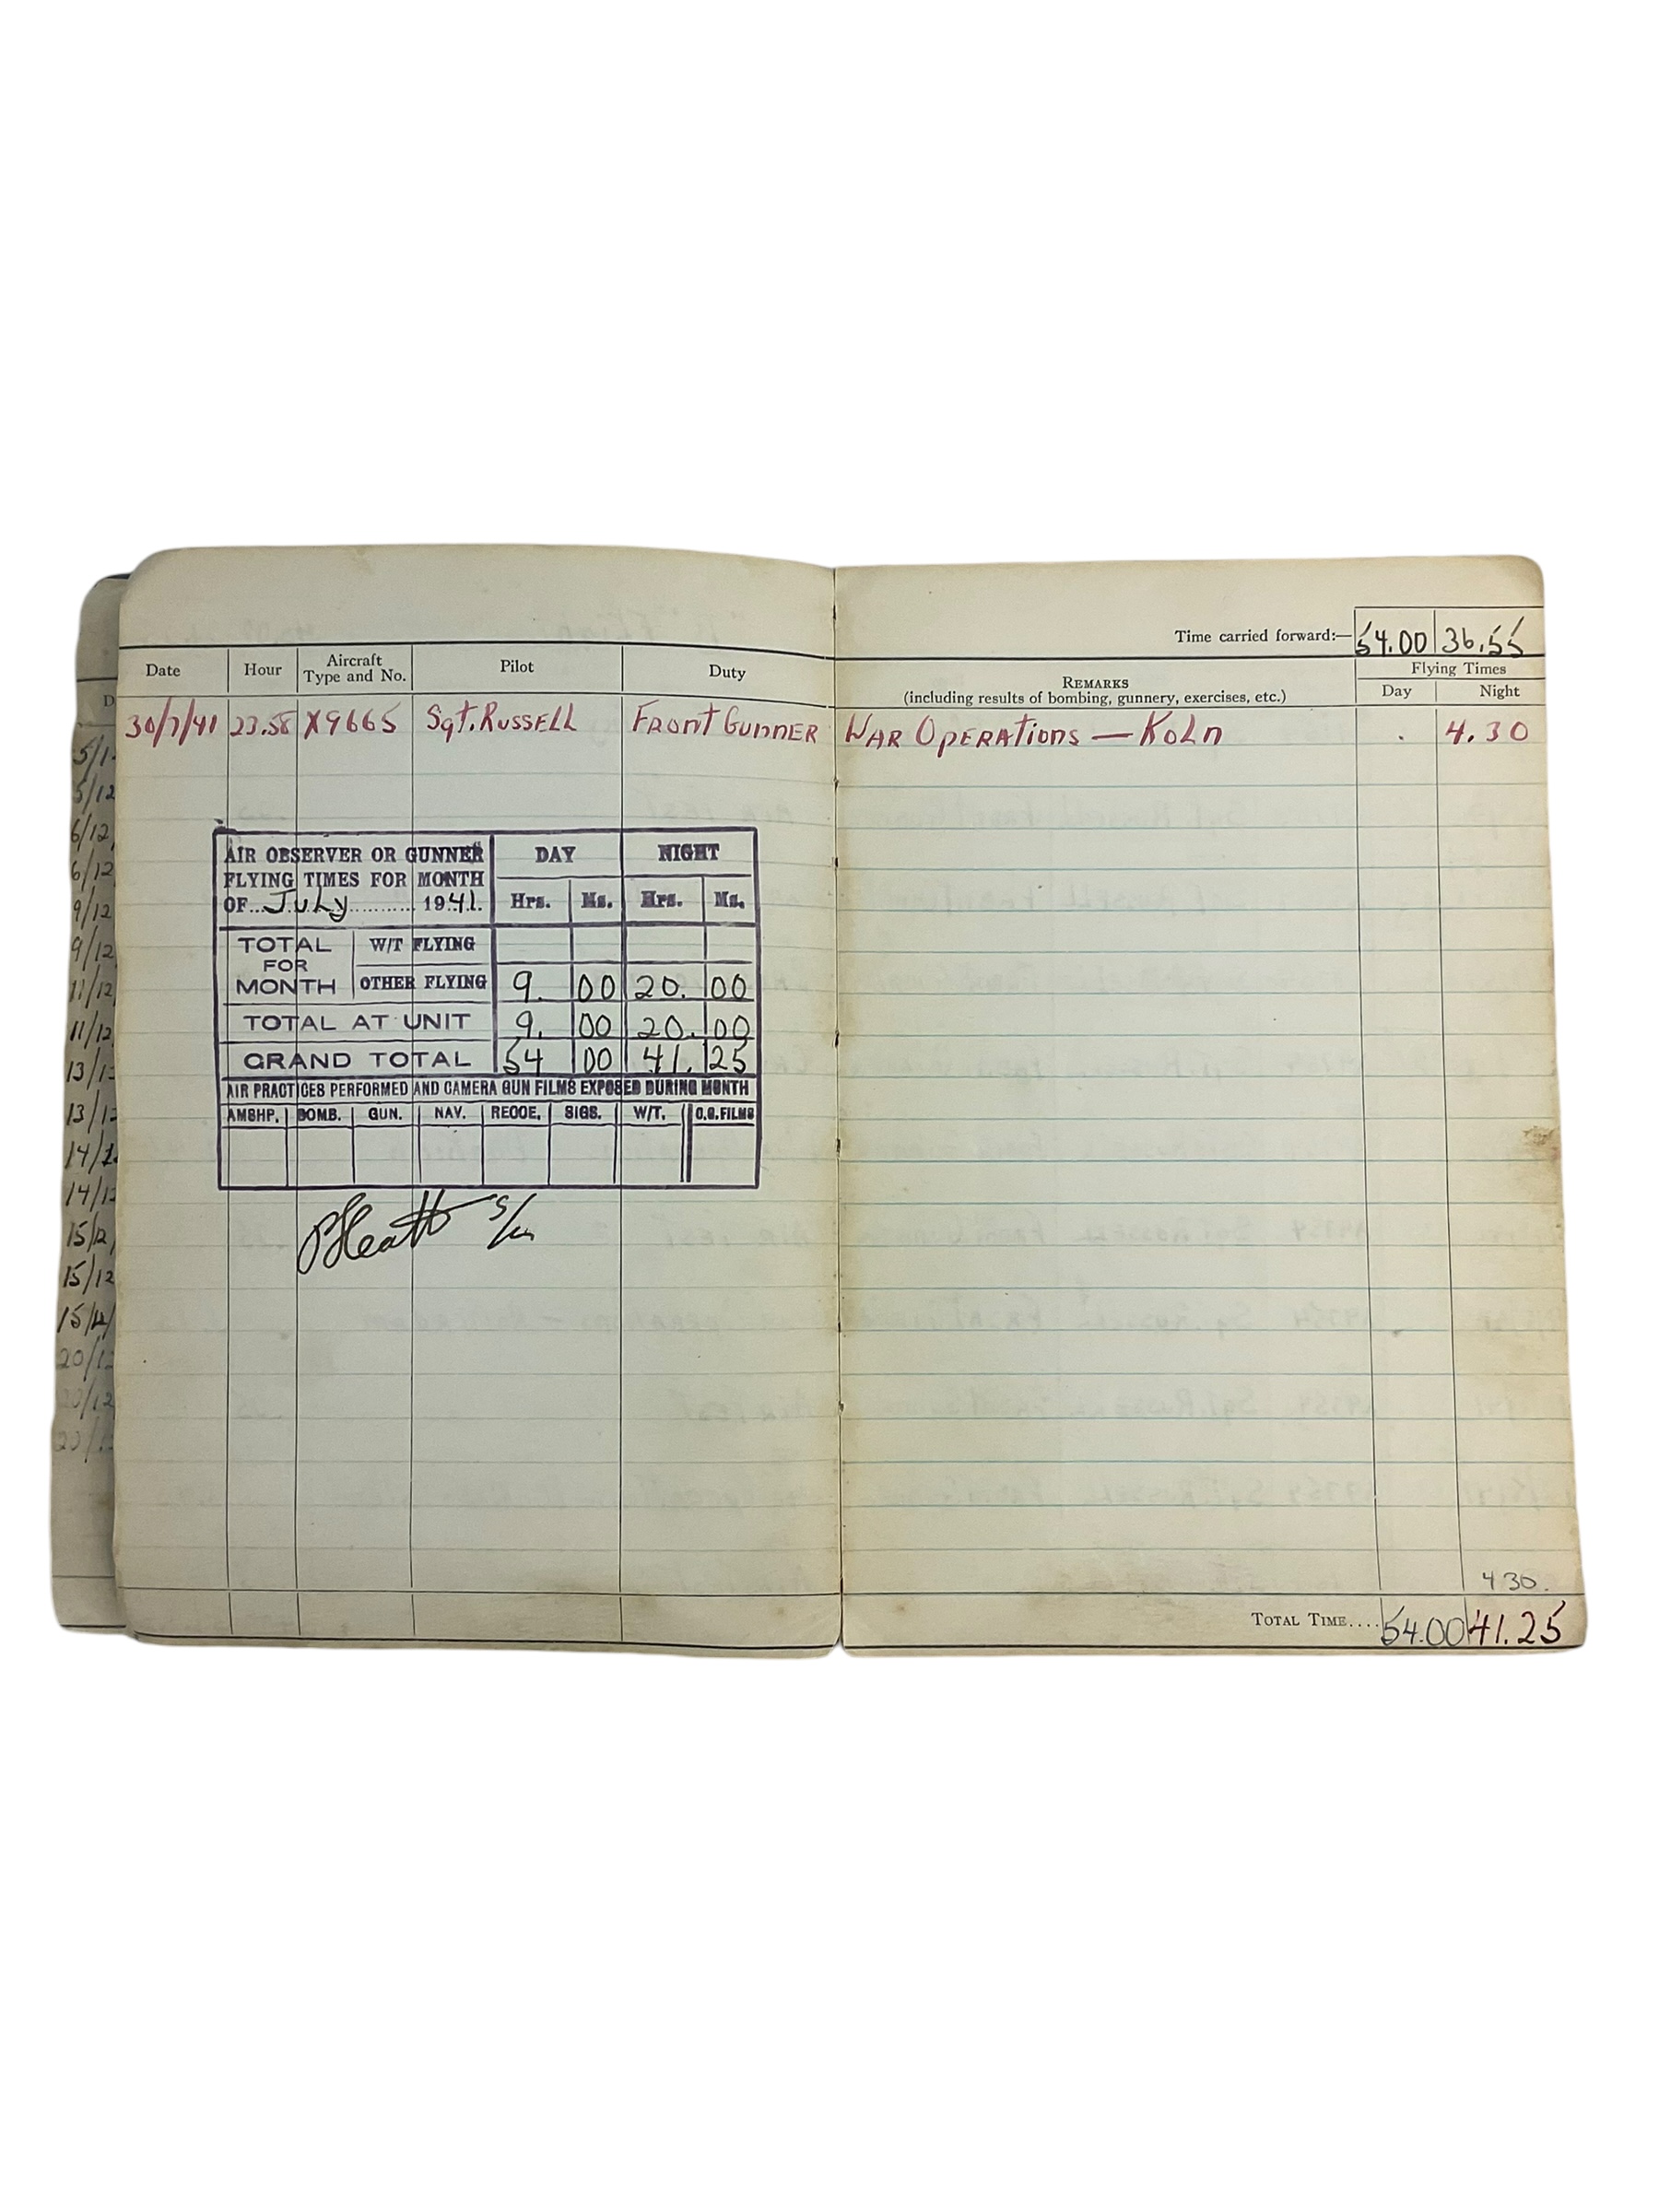 Time carried forward:— 54.00 36.55
Date Hour Aircraft Type and No. Pilot Duty REMARKS (including results of bombing, gunnery, exercises, etc.) Flying Times Day Night
30/7/41 23.58 X9665 Sgt. RUSSELL FRONT GUNNER WAR OPERATIONS — KOLN . 4.30
AIR OBSERVER OR GUNNER DAY NIGHT
FLYING TIMES FOR MONTH
OF...July...........1941. Hrs. Ms. Hrs. Ms.
TOTAL FOR MONTH W/T FLYING
OTHER FLYING 9. 00 20. 00
TOTAL AT UNIT 9. 00 20. 00
GRAND TOTAL 54 00 41. 25
AIR PRACTICES PERFORMED AND CAMERA GUN FILMS EXPOSED DURING MONTH
AMSHP. BOMB. GUN. NAV. RECCE. SIGS. W/T. C.G.FILMS
4 30.
TOTAL TIME.... 54.00 41.25
D
5/1
5/12
6/12
6/12
9/12
9/12
11/12
11/12
13/1
13/12
14/1
14/12
15/12
15/12
15/12
20/12
20/12
20/1